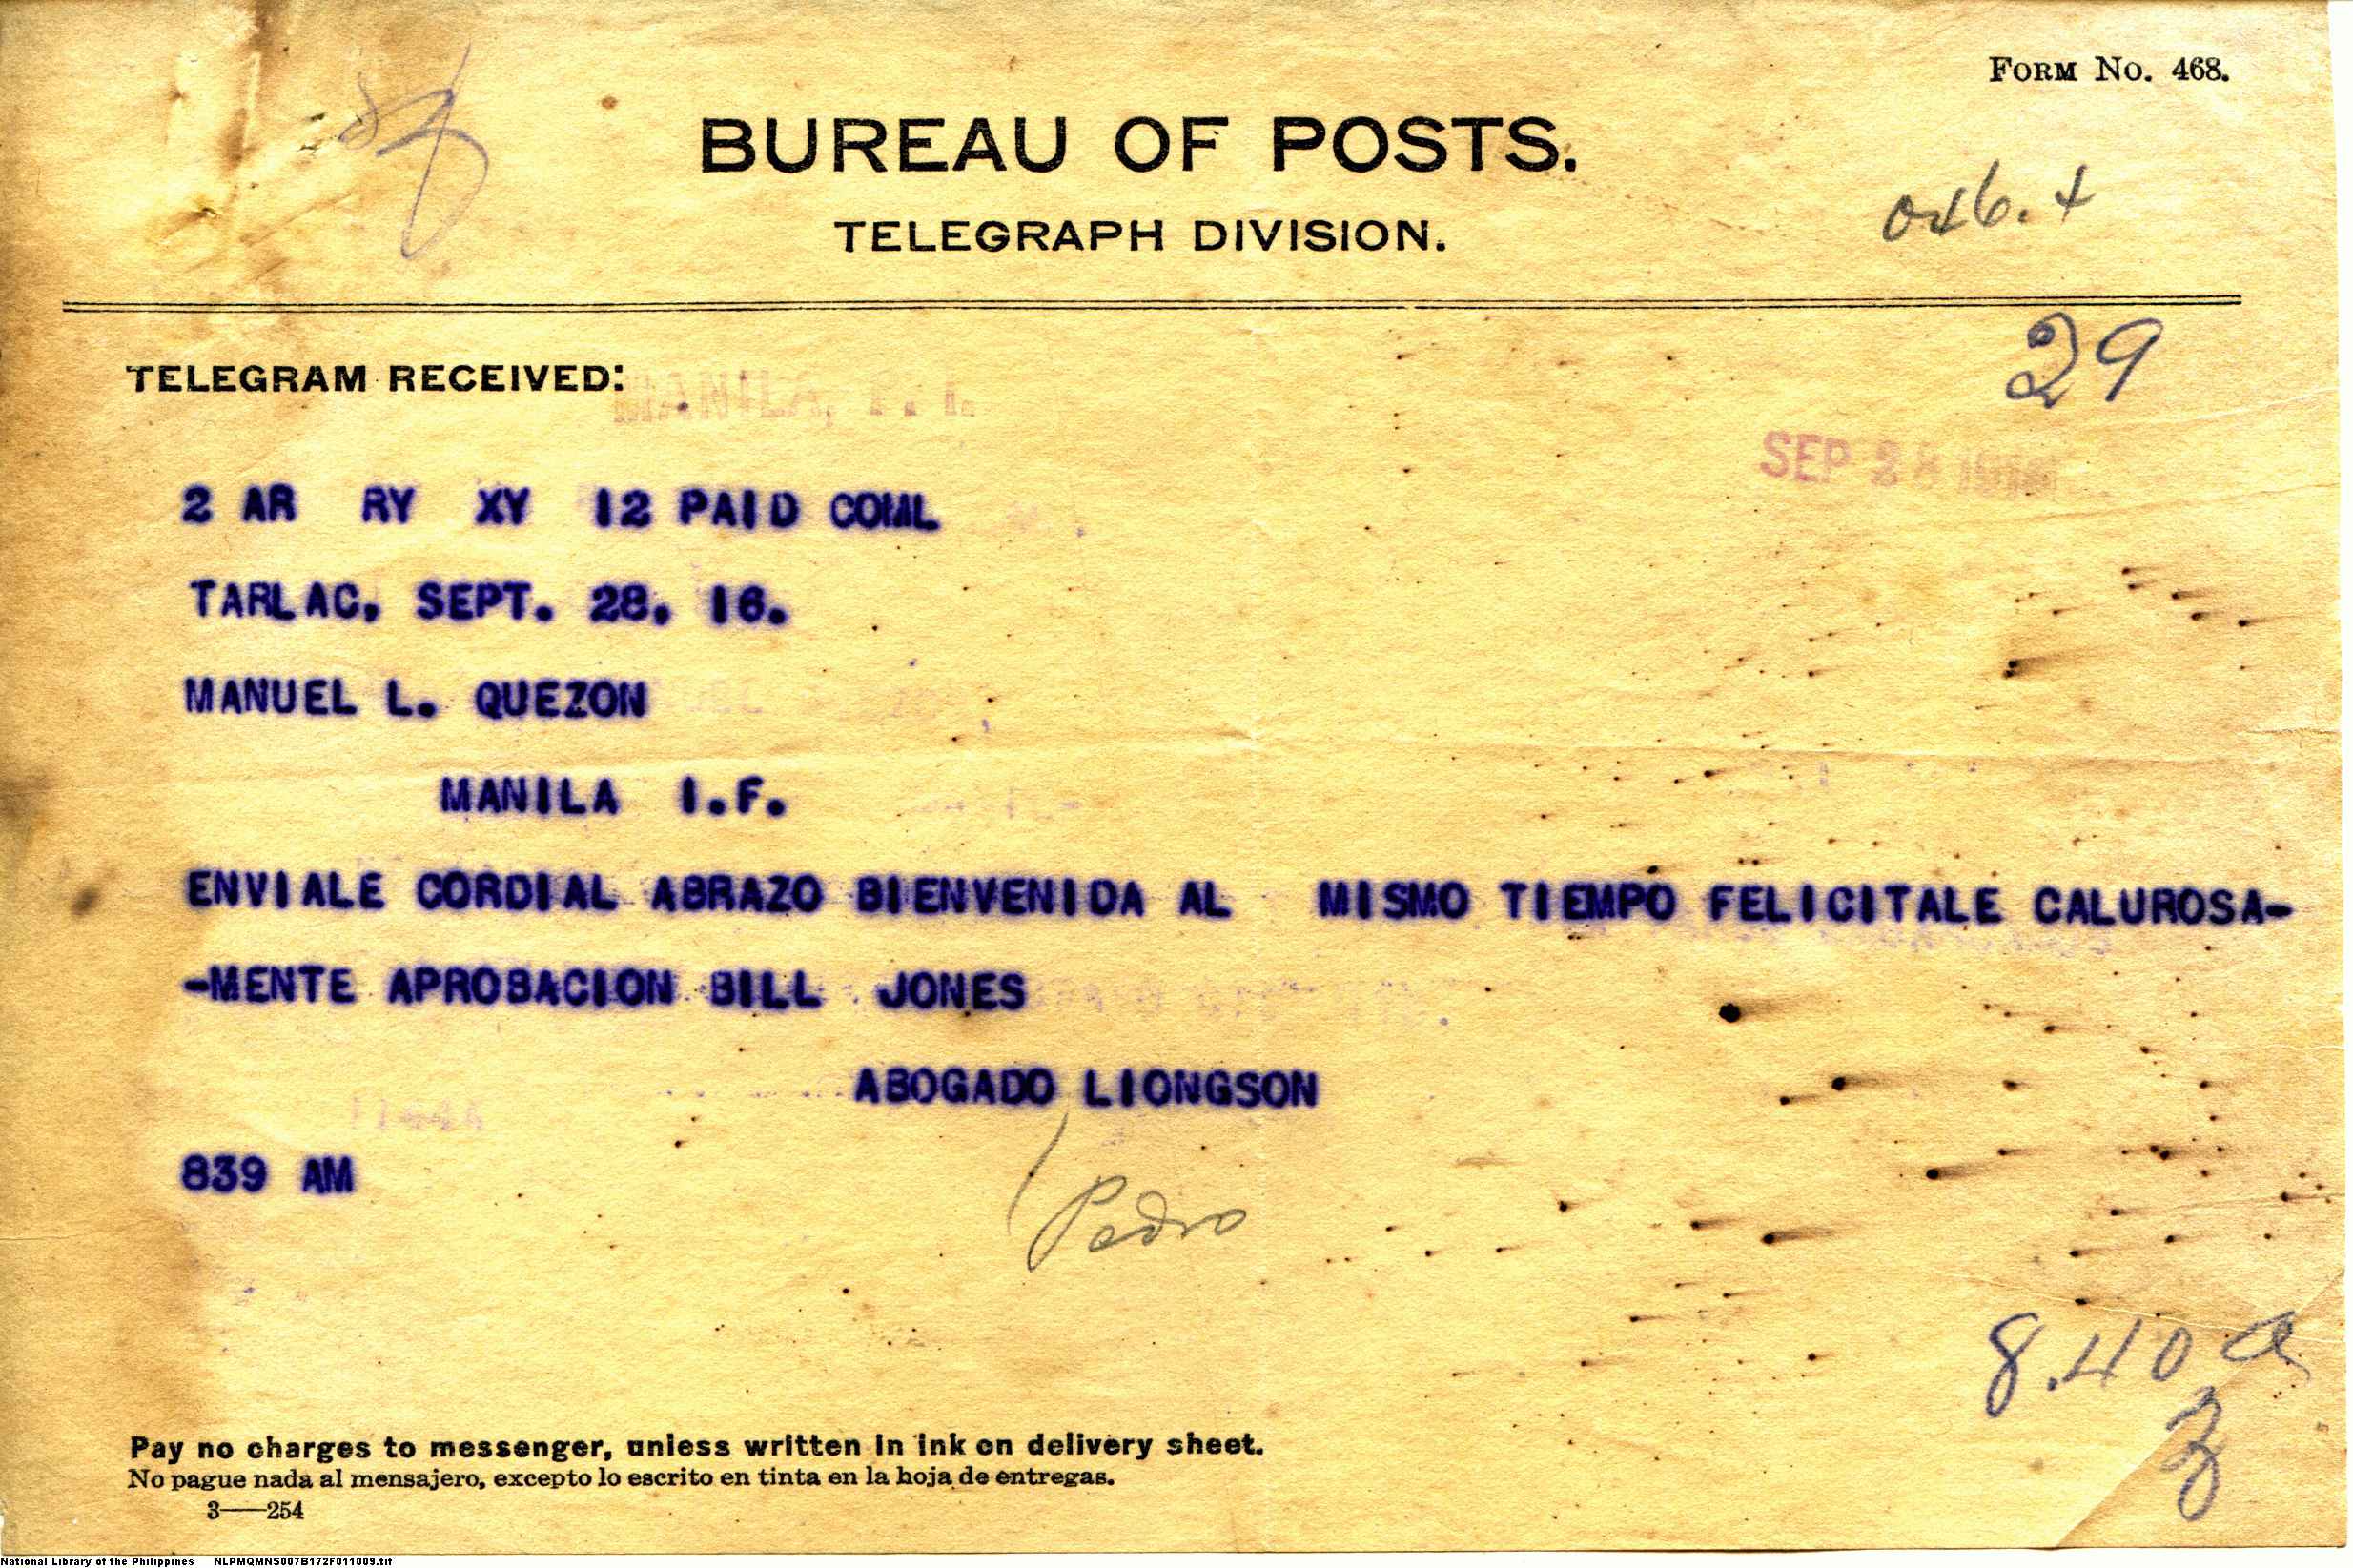 FORM No. 468.
BUREAU OF POSTS.
TELEGRAPH DIVISION.
29
TELEGRAM RECEIVED:
MANILA, P. I.
SEP 28 1916
2 AR RY XY 12 PAID COML
TARLAC, SEPT. 28, 16.
MANUEL L. QUEZON
MANILA I.F.
ENVIALE CORDIAL ABRAZO BIENVENIDA AL MISMO TIEMPO FELICITALE CALUROSA-
-MENTE APROBACION BILL JONES
ABOGADO LIONGSON
839 AM
Pedro
8.40 a
Pay no charges to messenger, unless written in ink on delivery sheet.
No pague nada al mensajero, excepto lo escrito en tinta en la hoja de entregas.
3——254
National Library of the Philippines NLPMQMNS007B172F011009.tif